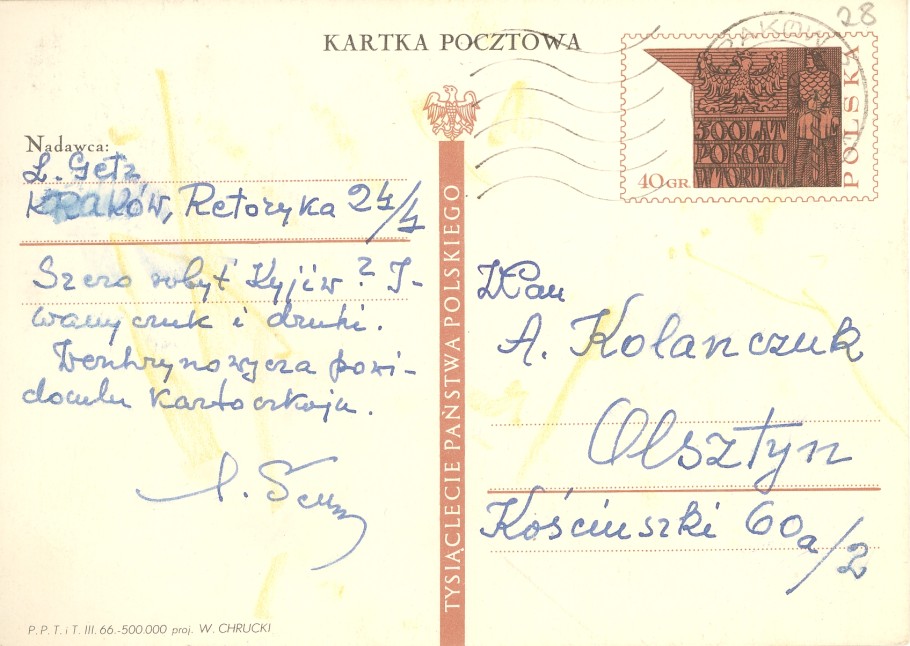 28
KARTKA POCZTOWA
KRAKÓW
500 LAT
POKOJU
W TORUNIU
40 GR
POLSKA
Nadawca:
L. Getz
Kraków, Retoryka 24/4
Szczo robyt' Kyjiw? I-
wanyczuk i druhi.
powi-
kartoczkoju.
TYSIĄCLECIE PAŃSTWA POLSKIEGO
WPan
A. Kolanczuk
Olsztyn
Kościuszki 60a/2
P.P.T. i T. III. 66.-500.000 proj. W. CHRUCKI